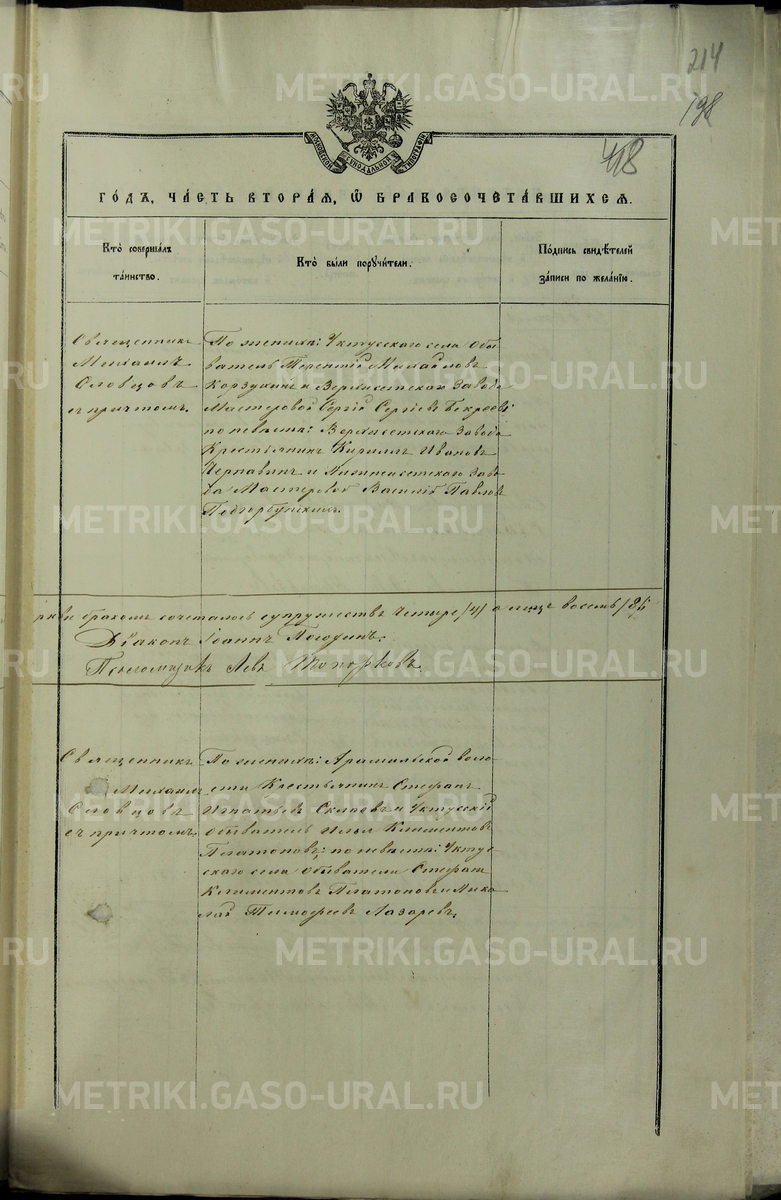 214
198
418
МОСКОВСКОЙ СѴНОДАЛЬНОЙ ТИПОГРАФІИ
ГОДЪ, ЧАСТЬ ВТОРАЯ, Ѿ БРАКОСОЧЕТАВШИХСЯ.
Кто совершалъ таинство.
Кто были поручители.
Подпись свидѣтелей записи по желанію.
Священникъ
Михаилъ
Словцовъ
съ причтомъ.
По женихѣ: Уктусскаго села Обы
ватель Терентій Михайловъ
Корзухинъ и Верхисетскаго Завода
Мастеровой Сергій Сергіевъ
по невѣстѣ: Верхисетскаго Завода
Крестьянинъ Кириллъ Ивановъ
Чернавинъ и Нижнеисетскаго Заво
да Мастеровой Василій Павловъ
Подгорбунскихъ.
ркви бракомъ сочеталось супружествъ четыре /4/ а лицъ восемь /8/
Діаконъ Іоаннъ
Псаломщикъ Левъ Топорковъ.
Священникъ
Михаилъ
Словцовъ
съ причтомъ.
По женихѣ: Арамильской воло
сти Крестьянинъ Стефанъ
Игнатьевъ и Уктусскій
обыватель Илья Климентовъ
Платоновъ; по невѣстѣ: Уктус
скаго села обыватели Стефанъ
Климентовъ Платоновъ и Нико
лай Тимофеевъ Лазаревъ.
METRIKI.GASO-URAL.RU